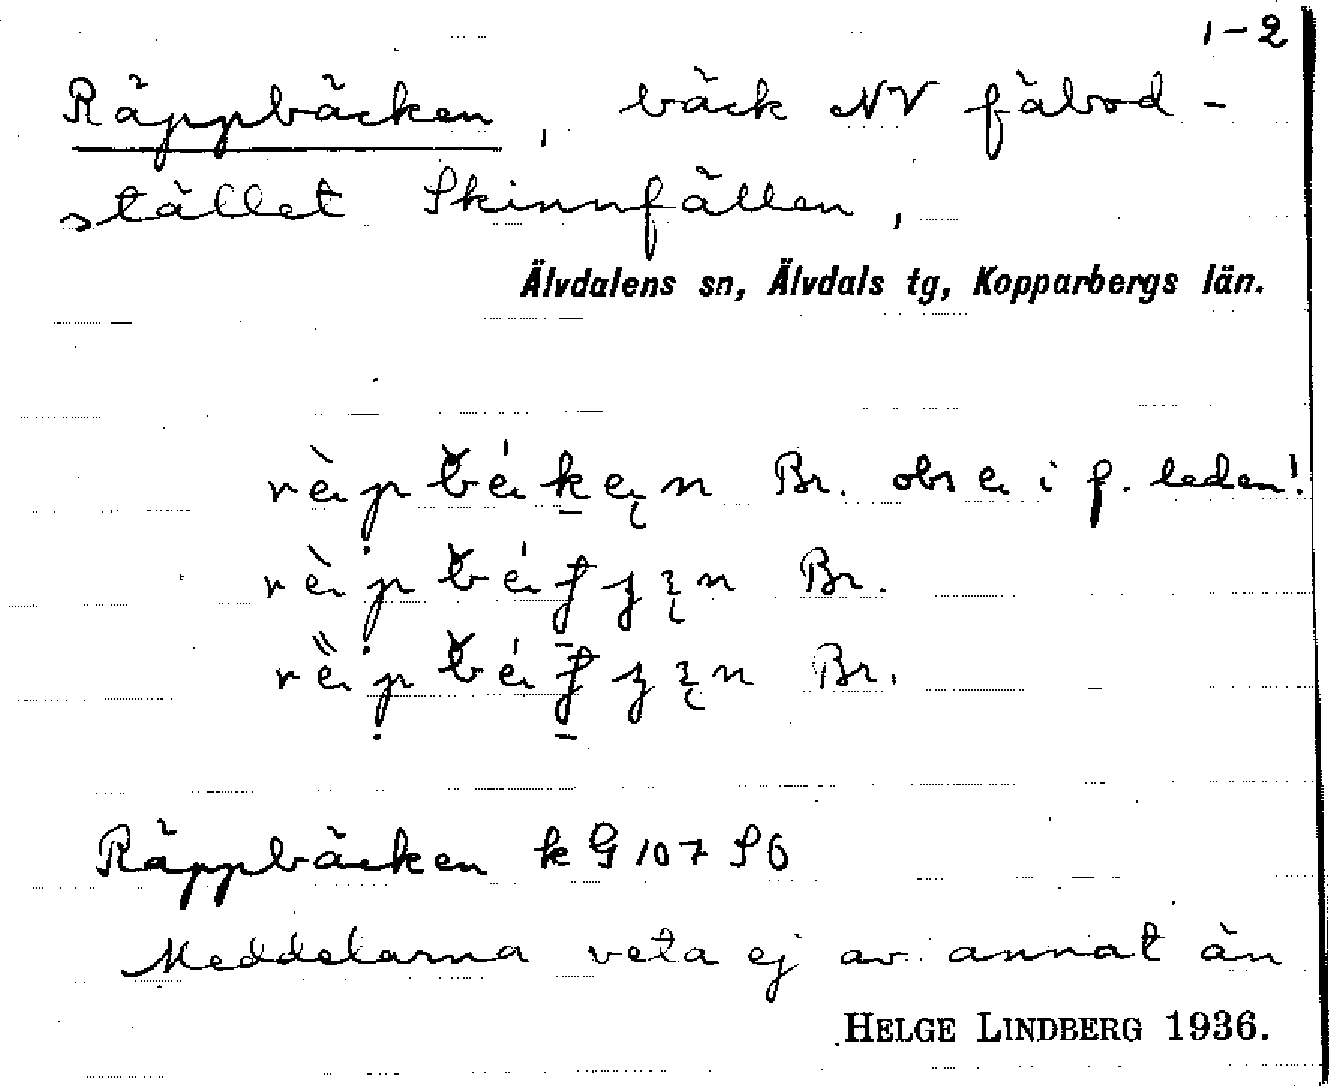 1-2
Räppbäcken, bäck NV fäbod-
stället Skinnfällen,
Älvdalens sn, Älvdals tg, Kopparbergs län.
Br. obs i f. leden!
Br.
Br.
Räppbäcken k G 107 SÖ
Meddelarna veta ej av annat än
HELGE LINDBERG 1936.